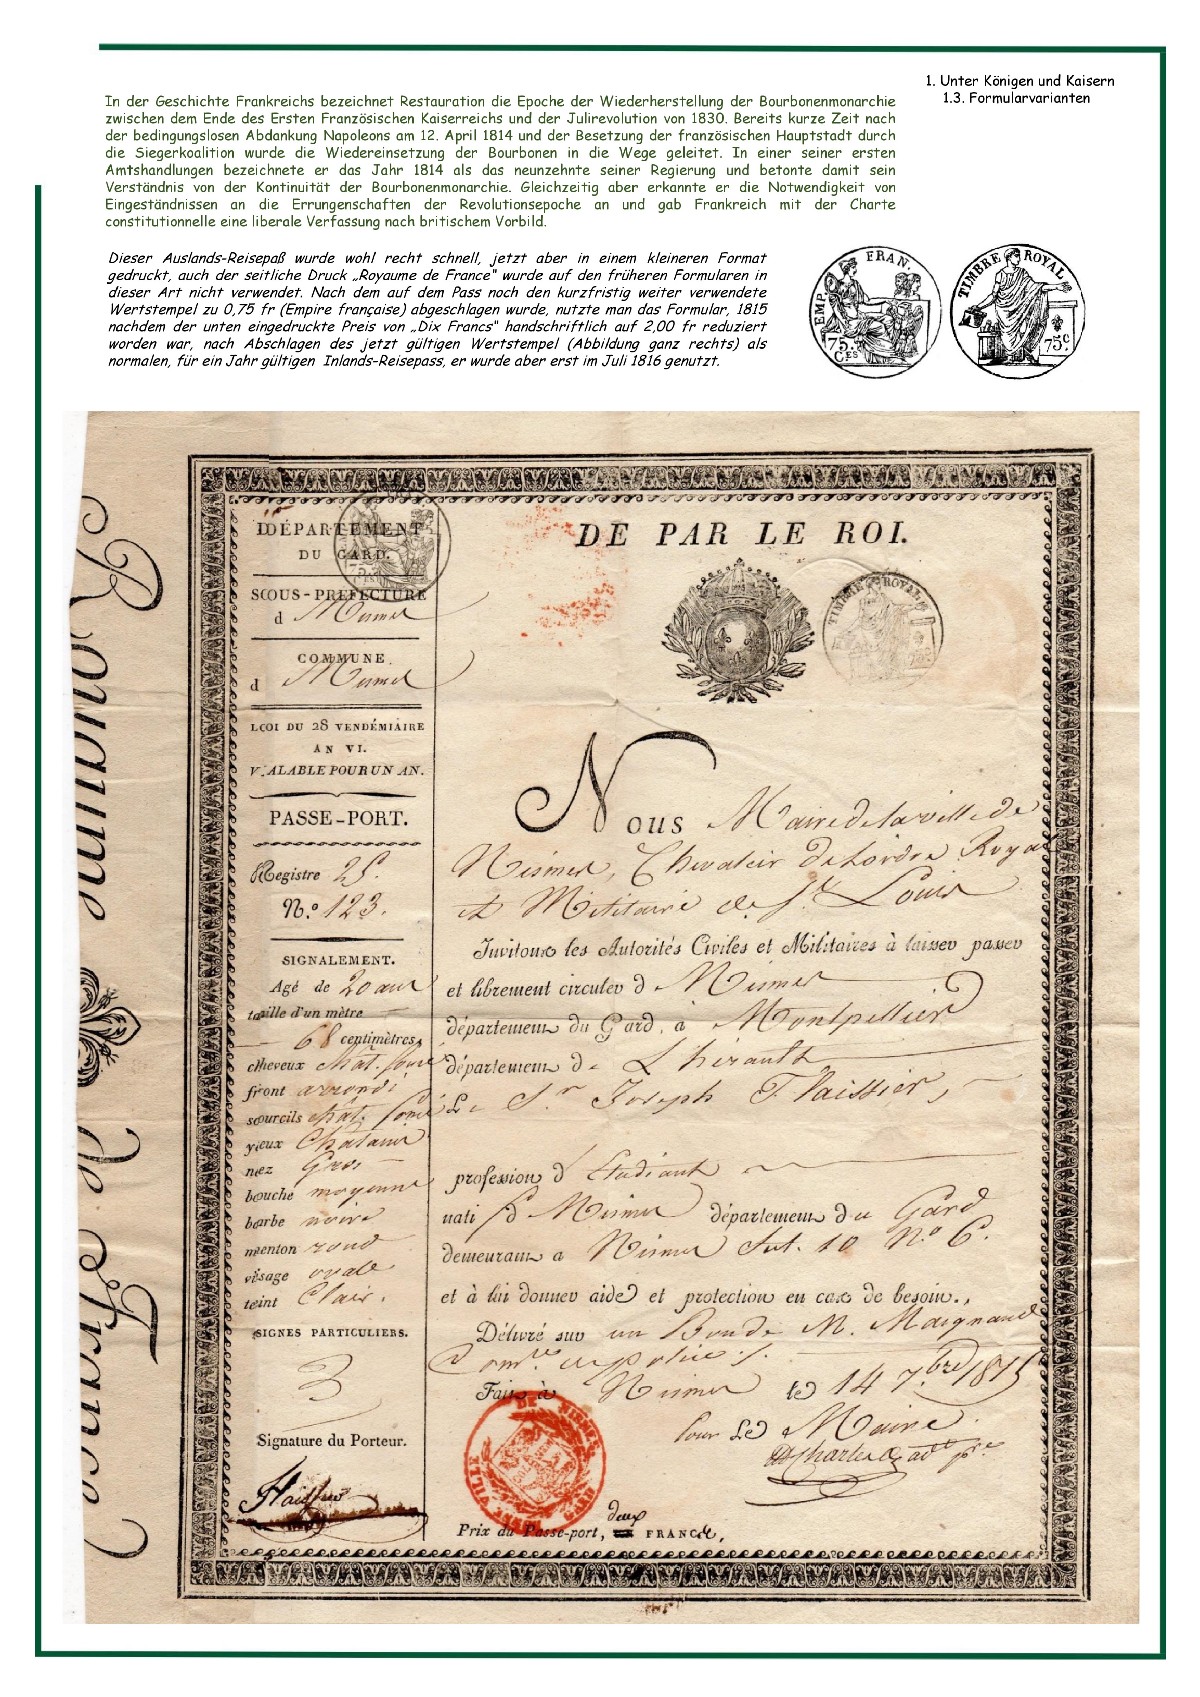 1. Unter Königen und Kaisern
1.3. Formularvarianten
In der Geschichte Frankreichs bezeichnet Restauration die Epoche der Wiederherstellung der Bourbonenmonarchie
zwischen dem Ende des Ersten Französischen Kaiserreichs und der Julirevolution von 1830. Bereits kurze Zeit nach
der bedingungslosen Abdankung Napoleons am 12. April 1814 und der Besetzung der französischen Hauptstadt durch
die Siegerkoalition wurde die Wiedereinsetzung der Bourbonen in die Wege geleitet. In einer seiner ersten
Amtshandlungen bezeichnete er das Jahr 1814 als das neunzehnte seiner Regierung und betonte damit sein
Verständnis von der Kontinuität der Bourbonenmonarchie. Gleichzeitig aber erkannte er die Notwendigkeit von
Eingeständnissen an die Errungenschaften der Revolutionsepoche an und gab Frankreich mit der Charte
constitutionnelle eine liberale Verfassung nach britischem Vorbild.
Dieser Auslands-Reisepaß wurde wohl recht schnell, jetzt aber in einem kleineren Format
gedruckt, auch der seitliche Druck „Royaume de France“ wurde auf den früheren Formularen in
dieser Art nicht verwendet. Nach dem auf dem Pass noch den kurzfristig weiter verwendete
Wertstempel zu 0,75 fr (Empire française) abgeschlagen wurde, nutzte man das Formular, 1815
nachdem der unten eingedruckte Preis von „Dix Francs“ handschriftlich auf 2,00 fr reduziert
worden war, nach Abschlagen des jetzt gültigen Wertstempel (Abbildung ganz rechts) als
normalen, für ein Jahr gültigen Inlands-Reisepass, er wurde aber erst im Juli 1816 genutzt.
EMP. FRAN.
75. CES
TIMBRE ROYAL
75c.
DÉPARTEMENT
DU GARD.
SOUS-PRÉFECTURE
d Nismes
COMMUNE
d Nismes
LOI DU 28 VENDÉMIAIRE
AN VI.
VALABLE POUR UN AN.
PASSE-PORT.
Registre 25.
N.º 123.
SIGNALEMENT.
Agé de 20 ans
taille d'un mètre
68 centimètres
cheveux chât. foncé
front arrondi
sourcils chât. foncé
yeux Chatains
nez Gros
bouche moyenne
barbe noire
menton rond
visage ovale
teint Clair.
SIGNES PARTICULIERS.
Signature du Porteur.
Flaissier
DE PAR LE ROI.
TIMBRE ROYAL
75c.
Nous Maire de la ville de
Nismes, Chevalier de Lordre Royal
et Militaire de St. Louis
Invitons les Autorités Civiles et Militaires à laisser passer
et librement circuler d Nismes
département du Gard, à Montpellier
département de L'hérault
Le Sr Joseph Flaissier,
profession d Etudiant
natif d Nismes département du Gard
demeurant à Nismes Sect. 10 No 6.
et à lui donner aide et protection en cas de besoin.
Délivré sur un Bon de M. Maignaud
Comre de police.
Fait à Nismes le 14 7.bre 1815
Pour Le Maire
VILLE DE NISMES
Prix du Passe-port, deux FRANCS,